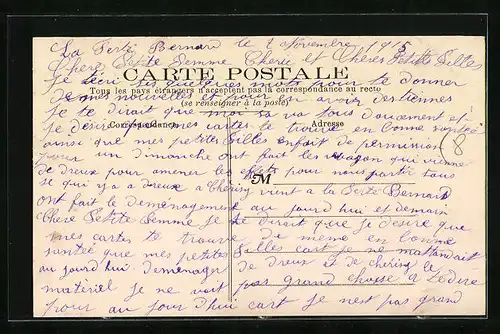 La Ferté Bernard le 1 Novembre 1915
Chere Petite Femme Cherie et Cheres Petites Filles
CARTE POSTALE
Je técri si quelques mots pour te donner
Tous les pays étrangers n'acceptent pas la correspondance au recto
de mes nouvelles et pour en avoir des tiennes
(se renseigner à la poste)
Je te dirait que moi sa va tous doucement et
Correspondance
Adresse
je désire que mes cartes te trouve en bonne santée
ainsi que mes petites filles enfait de permission
pour un dimanche ont fait les wagon qui vienne
de dreux pour amener les pour nous partir tous
SM
8
se qui y a a dreux a Cherisy vient a la Ferté Bernard
ont fait le demenagement au jourd hui et demain
Chere Petite Femme je te dirait que je desire que
mes cartes te trouve de meme en bonne
santée que mes petites filles cart je ne
au jourd hui demenager de dreux et de cherisy le
matériel je ne vait pas grand chosse a te dire
pour au jour d'hui cart je nest pas grand